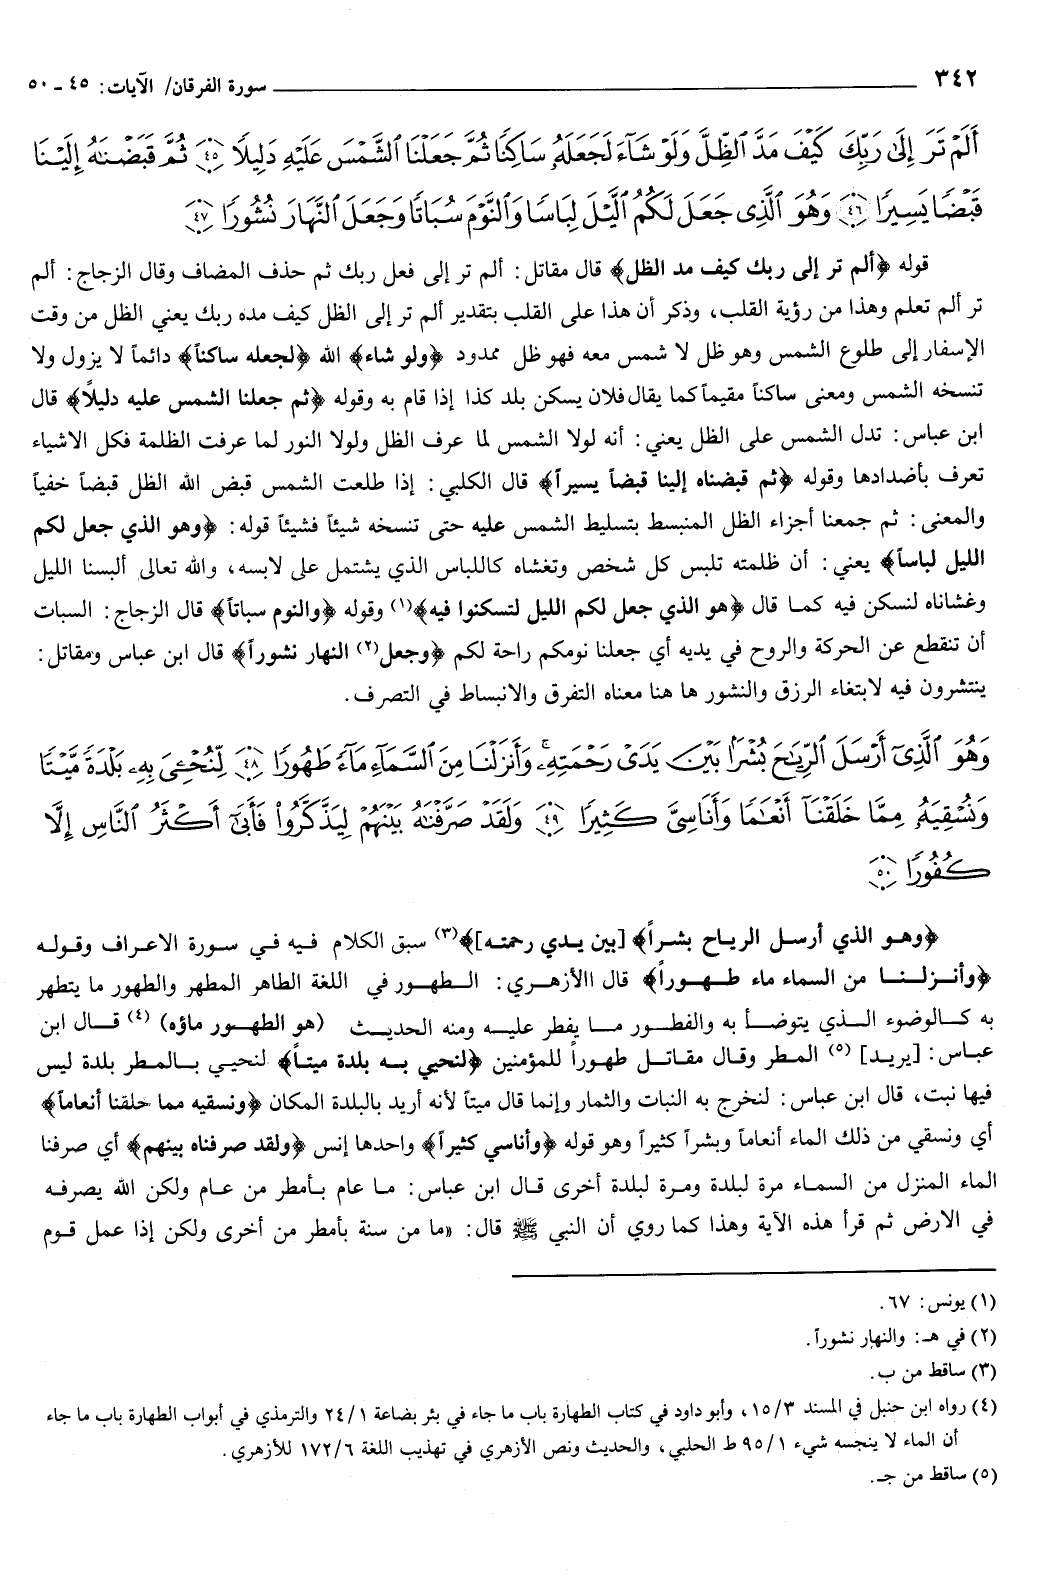 ٣٤٢ سورة الفرقان/ الآيات: ٤٥ - ٥٠
أَلَمْ تَرَ إِلَىٰ رَبِّكَ كَيْفَ مَدَّ ٱلظِّلَّ وَلَوْ شَآءَ لَجَعَلَهُۥ سَاكِنًا ثُمَّ جَعَلْنَا ٱلشَّمْسَ عَلَيْهِ دَلِيلًا ٤٥ ثُمَّ قَبَضْنَٰهُ إِلَيْنَا
قَبْضًا يَسِيرًا ٤٦ وَهُوَ ٱلَّذِى جَعَلَ لَكُمُ ٱلَّيْلَ لِبَاسًا وَٱلنَّوْمَ سُبَاتًا وَجَعَلَ ٱلنَّهَارَ نُشُورًا ٤٧
قوله ﴿ألم تر إلى ربك كيف مد الظل﴾ قال مقاتل: ألم تر إلى فعل ربك ثم حذف المضاف وقال الزجاج: ألم
تر ألم تعلم وهذا من رؤية القلب، وذكر أن هذا على القلب بتقدير ألم تر إلى الظل كيف مده ربك يعني الظل من وقت
الإسفار إلى طلوع الشمس وهو ظل لا شمس معه فهو ظل ممدود ﴿ولو شاء﴾ الله ﴿لجعله ساكناً﴾ دائماً لا يزول ولا
تنسخه الشمس ومعنى ساكناً مقيماً كما يقال فلان يسكن بلد كذا إذا قام به وقوله ﴿ثم جعلنا الشمس عليه دليلاً﴾ قال
ابن عباس: تدل الشمس على الظل يعني: أنه لولا الشمس لما عرف الظل ولولا النور لما عرفت الظلمة فكل الاشياء
تعرف بأضدادها وقوله ﴿ثم قبضناه إلينا قبضاً يسيراً﴾ قال الكلبي: إذا طلعت الشمس قبض الله الظل قبضاً خفياً
والمعنى: ثم جمعنا أجزاء الظل المنبسط بتسليط الشمس عليه حتى تنسخه شيئاً فشيئاً قوله: ﴿وهو الذي جعل لكم
الليل لباساً﴾ يعني: أن ظلمته تلبس كل شخص وتغشاه كاللباس الذي يشتمل على لابسه، والله تعالى ألبسنا الليل
وغشاناه لنسكن فيه كما قال ﴿هو الذي جعل لكم الليل لتسكنوا فيه﴾(١) وقوله ﴿والنوم سباتاً﴾ قال الزجاج: السبات
أن تنقطع عن الحركة والروح في يديه أي جعلنا نومكم راحة لكم ﴿وجعل(٢) النهار نشوراً﴾ قال ابن عباس ومقاتل:
ينتشرون فيه لابتغاء الرزق والنشور ها هنا معناه التفرق والانبساط في التصرف.
وَهُوَ ٱلَّذِىٓ أَرْسَلَ ٱلرِّيَٰحَ بُشْرًۢا بَيْنَ يَدَىْ رَحْمَتِهِۦۚ وَأَنزَلْنَا مِنَ ٱلسَّمَآءِ مَآءً طَهُورًا ٤٨ لِّنُحْـِۧىَ بِهِۦ بَلْدَةً مَّيْتًا
وَنُسْقِيَهُۥ مِمَّا خَلَقْنَآ أَنْعَٰمًا وَأَنَاسِىَّ كَثِيرًا ٤٩ وَلَقَدْ صَرَّفْنَٰهُ بَيْنَهُمْ لِيَذَّكَّرُوا۟ فَأَبَىٰٓ أَكْثَرُ ٱلنَّاسِ إِلَّا
كُفُورًا ٥٠
﴿وهو الذي أرسل الرياح بشراً﴾ [بين يدي رحمته]﴾(٣) سبق الكلام فيه في سورة الاعراف وقوله
﴿وأنزلنا من السماء ماء طهوراً﴾ قال االأزهري: الطهور في اللغة الطاهر المطهر والطهور ما يتطهر
به كالوضوء الذي يتوضأ به والفطور ما يفطر عليه ومنه الحديث (هو الطهور ماؤه) (٤) قال ابن
عباس: [يريد] (٥) المطر وقال مقاتل طهوراً للمؤمنين ﴿لنحيي به بلدة ميتاً﴾ لنحيي بالمطر بلدة ليس
فيها نبت، قال ابن عباس: لنخرج به النبات والثمار وإنما قال ميتاً لأنه أريد بالبلدة المكان ﴿ونسقيه مما خلقنا أنعاماً﴾
أي ونسقي من ذلك الماء أنعاماً وبشراً كثيراً وهو قوله ﴿وأناسي كثيراً﴾ واحدها إنس ﴿ولقد صرفناه بينهم﴾ أي صرفنا
الماء المنزل من السماء مرة لبلدة ومرة لبلدة أخرى قال ابن عباس: ما عام بأمطر من عام ولكن الله يصرفه
في الارض ثم قرأ هذه الآية وهذا كما روي أن النبي ﷺ قال: «ما من سنة بأمطر من أخرى ولكن إذا عمل قوم
(١) يونس: ٦٧.
(٢) في هـ: والنهار نشوراً.
(٣) ساقط من ب.
(٤) رواه ابن حنبل في المسند ١٥/٣، وأبو داود في كتاب الطهارة باب ما جاء في بئر بضاعة ٢٤/١ والترمذي في أبواب الطهارة باب ما جاء
أن الماء لا ينجسه شيء ٩٥/١ ط الحلبي، والحديث ونص الأزهري في تهذيب اللغة ١٧٢/٦ للأزهري.
(٥) ساقط من جـ.